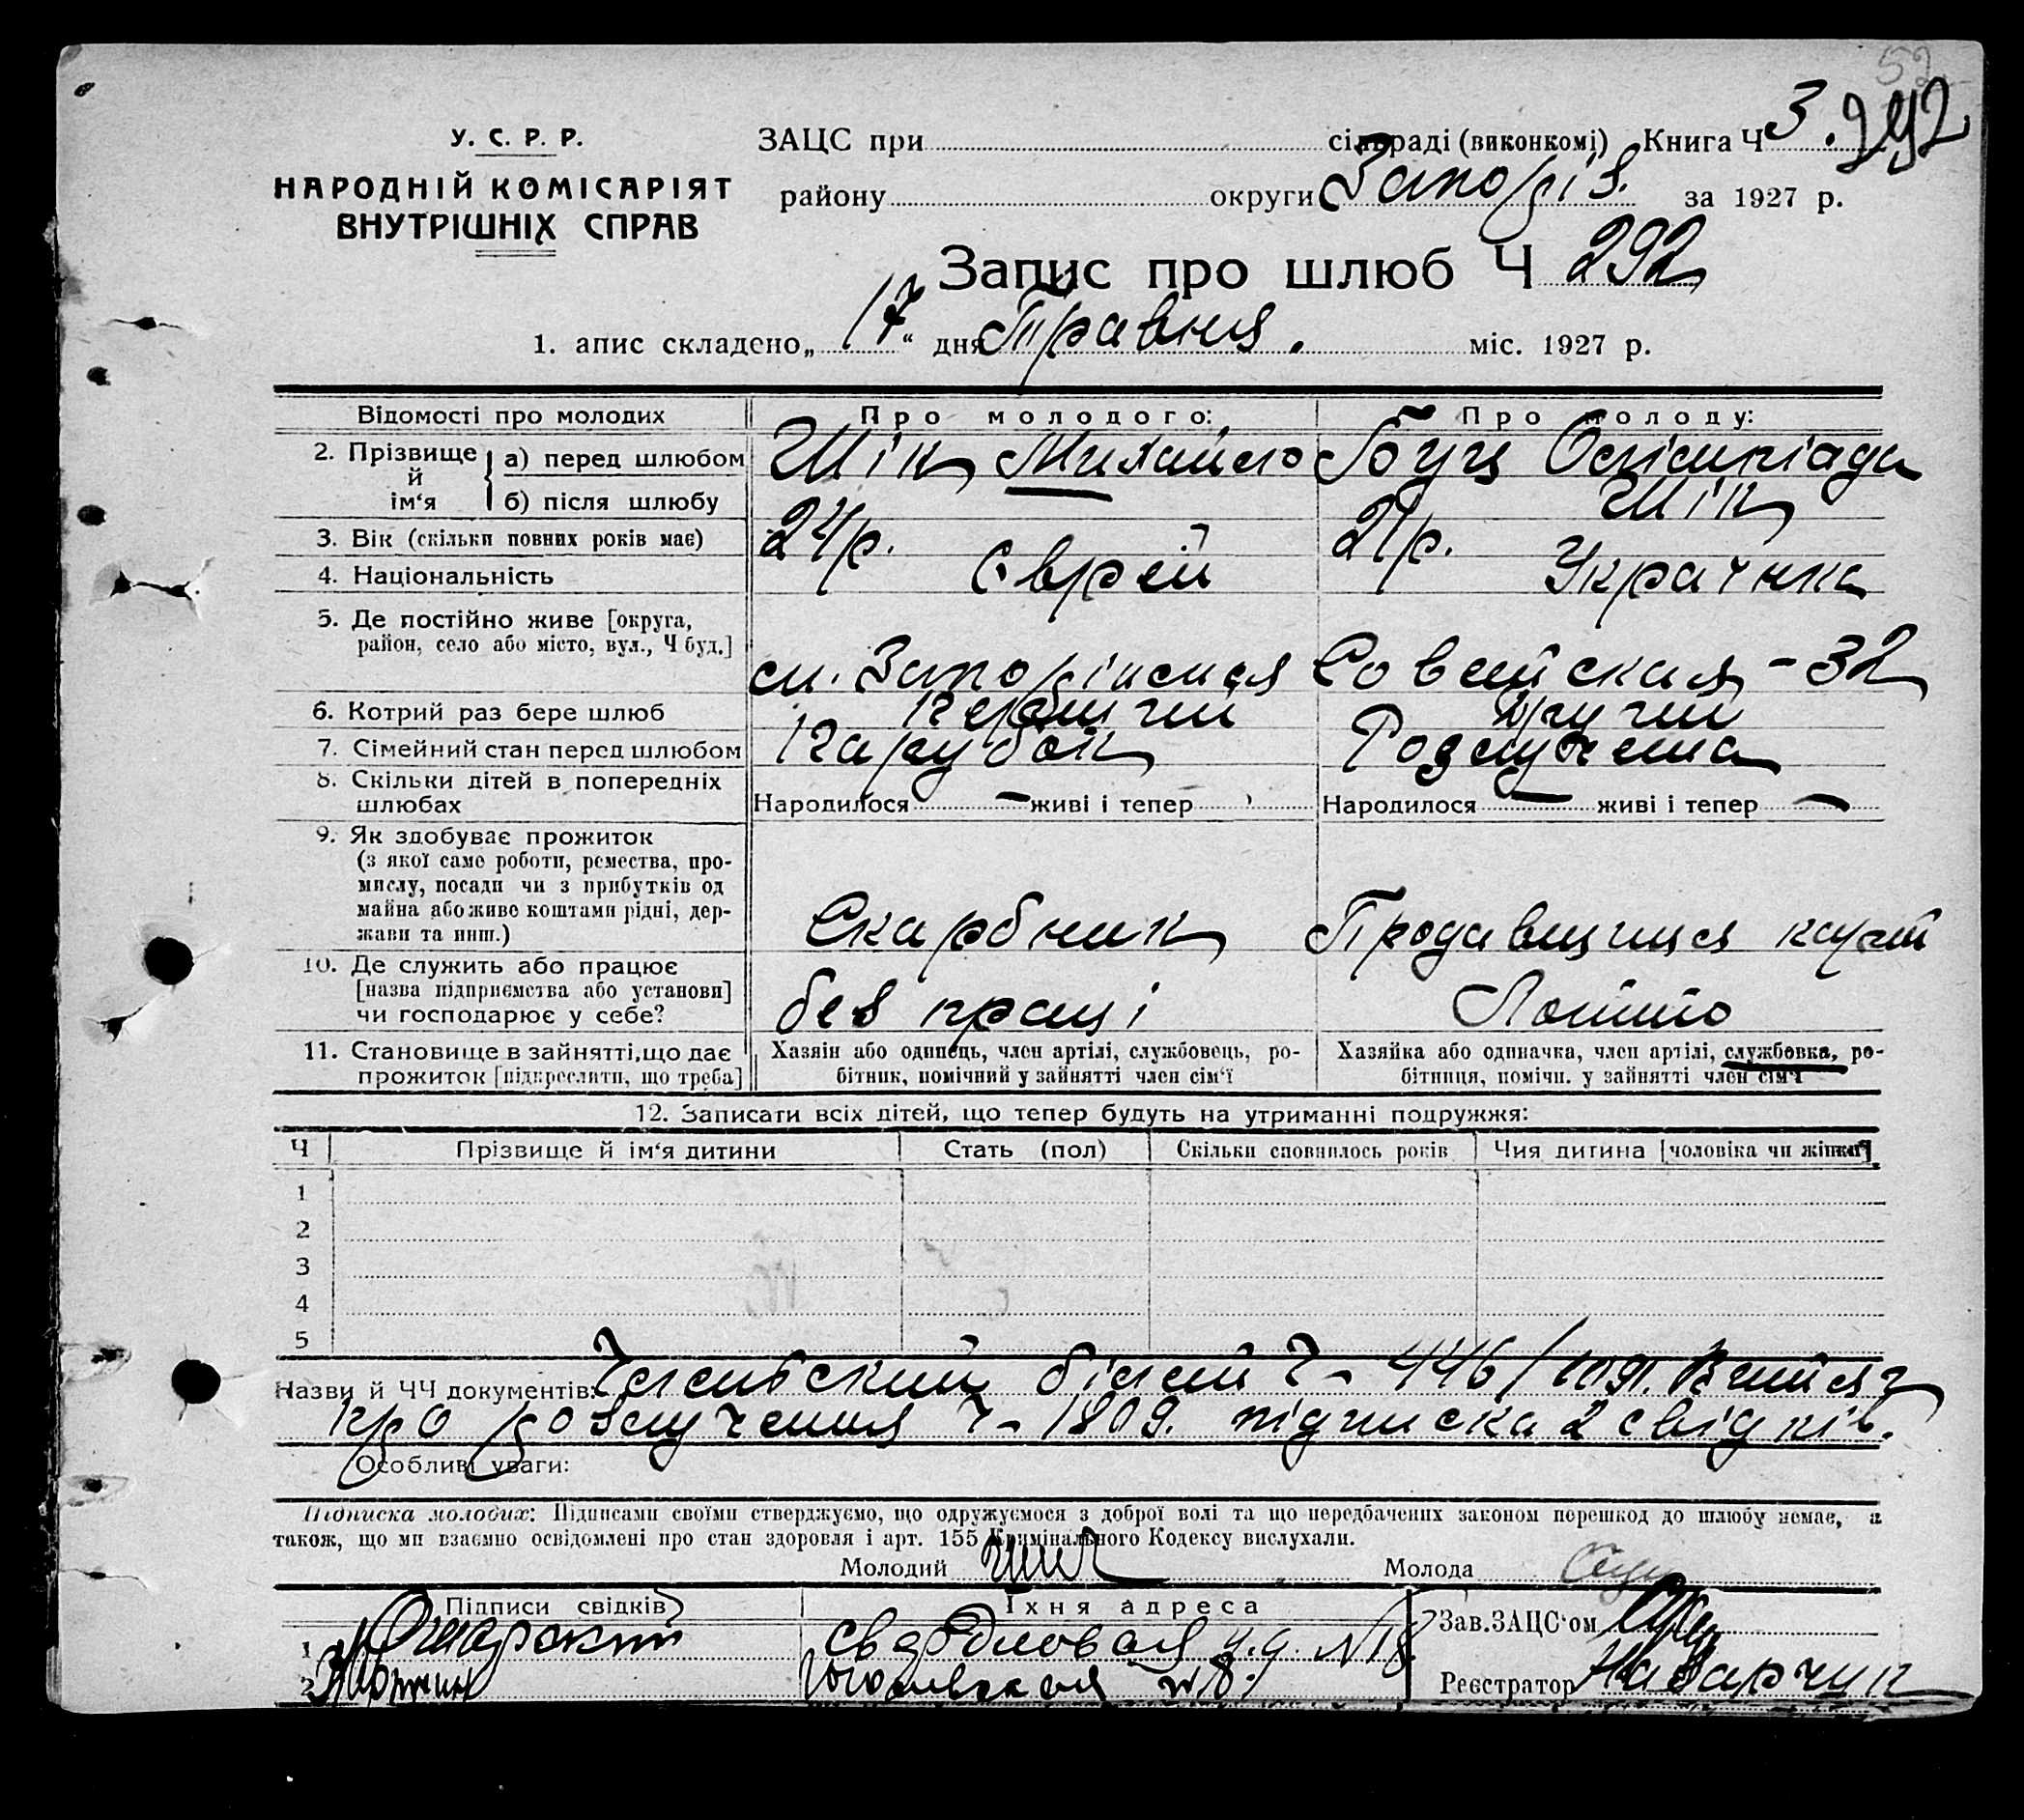 52
У. С. Р. Р.
НАРОДНІЙ КОМІСАРІЯТ
ВНУТРІШНІХ СПРАВ
ЗАЦС при сільраді (виконкомі) Книга Ч 3. 292
району округи Запоріз. за 1927 р.
Запис про шлюб Ч 292
1. апис складено „17“ дня Травня. міс. 1927 р.
Відомості про молодих Про молодого: Про молоду:
2. Прізвище й ім‘я а) перед шлюбом Шік Михайло Буц Олімпіада
б) після шлюбу Шік
3. Вік (скільки повних років має) 24 р. 21 р.
4. Національність Єврей Украінка
5. Де постійно живе [округа,
район, село або місто, вул., Ч буд.] Совєйская - 32
6. Котрий раз бере шлюб Первший Другий
7. Сімейний стан перед шлюбом Парубок Розлучена
8. Скільки дітей в попередніх
шлюбах Народилося — живі і тепер Народилося — живі і тепер —
9. Як здобуває прожиток
(з якої само роботи, ремества, про-
мислу, посади чи з прибутків од
майна або живе коштами рідні, дер-
жави та инш.) Скарбник Продавщиця карт
10. Де служить або працює
[назва підприємства або установи]
чи господарює у себе? без праці Лотто
11. Становище в зайнятті, що дає
прожиток [підкреслити, що треба]
Хазяін або одинець, член артілі, службовець, ро-
бітник, помічний у зайнятті член сім‘ї
Хазяйка або одиначка, член артілі, службовка, ро-
бітниця, помічн. у зайнятті член сім‘ї
12. Записати всіх дітей, що тепер будуть на утриманні подружжя:
Ч Прізвище й ім‘я дитини Стать (пол) Скільки сповнилось років Чия дитина [чоловіка чи жінки]
1
2
3
4
5
Назви й ЧЧ документів: Членський білет Ч- 446
про розлучення Ч- 1809. підписка 2 свідків.
Особливі уваги:
Підписка молодих: Підписами своїми стверджуємо, що одружуємося з доброї волі та що передбачених законом перешкод до шлюбу немає, а
також, що ми взаємно освідомлені про стан здоровля і арт. 155 Кримінального Кодексу вислухали.
Молодий Шик Молода
Підписи свідків Їхня адреса
1 свердловая у.д. N 18. Зав. ЗАЦС‘ом
2 N 8. Реєстратор Назарчук